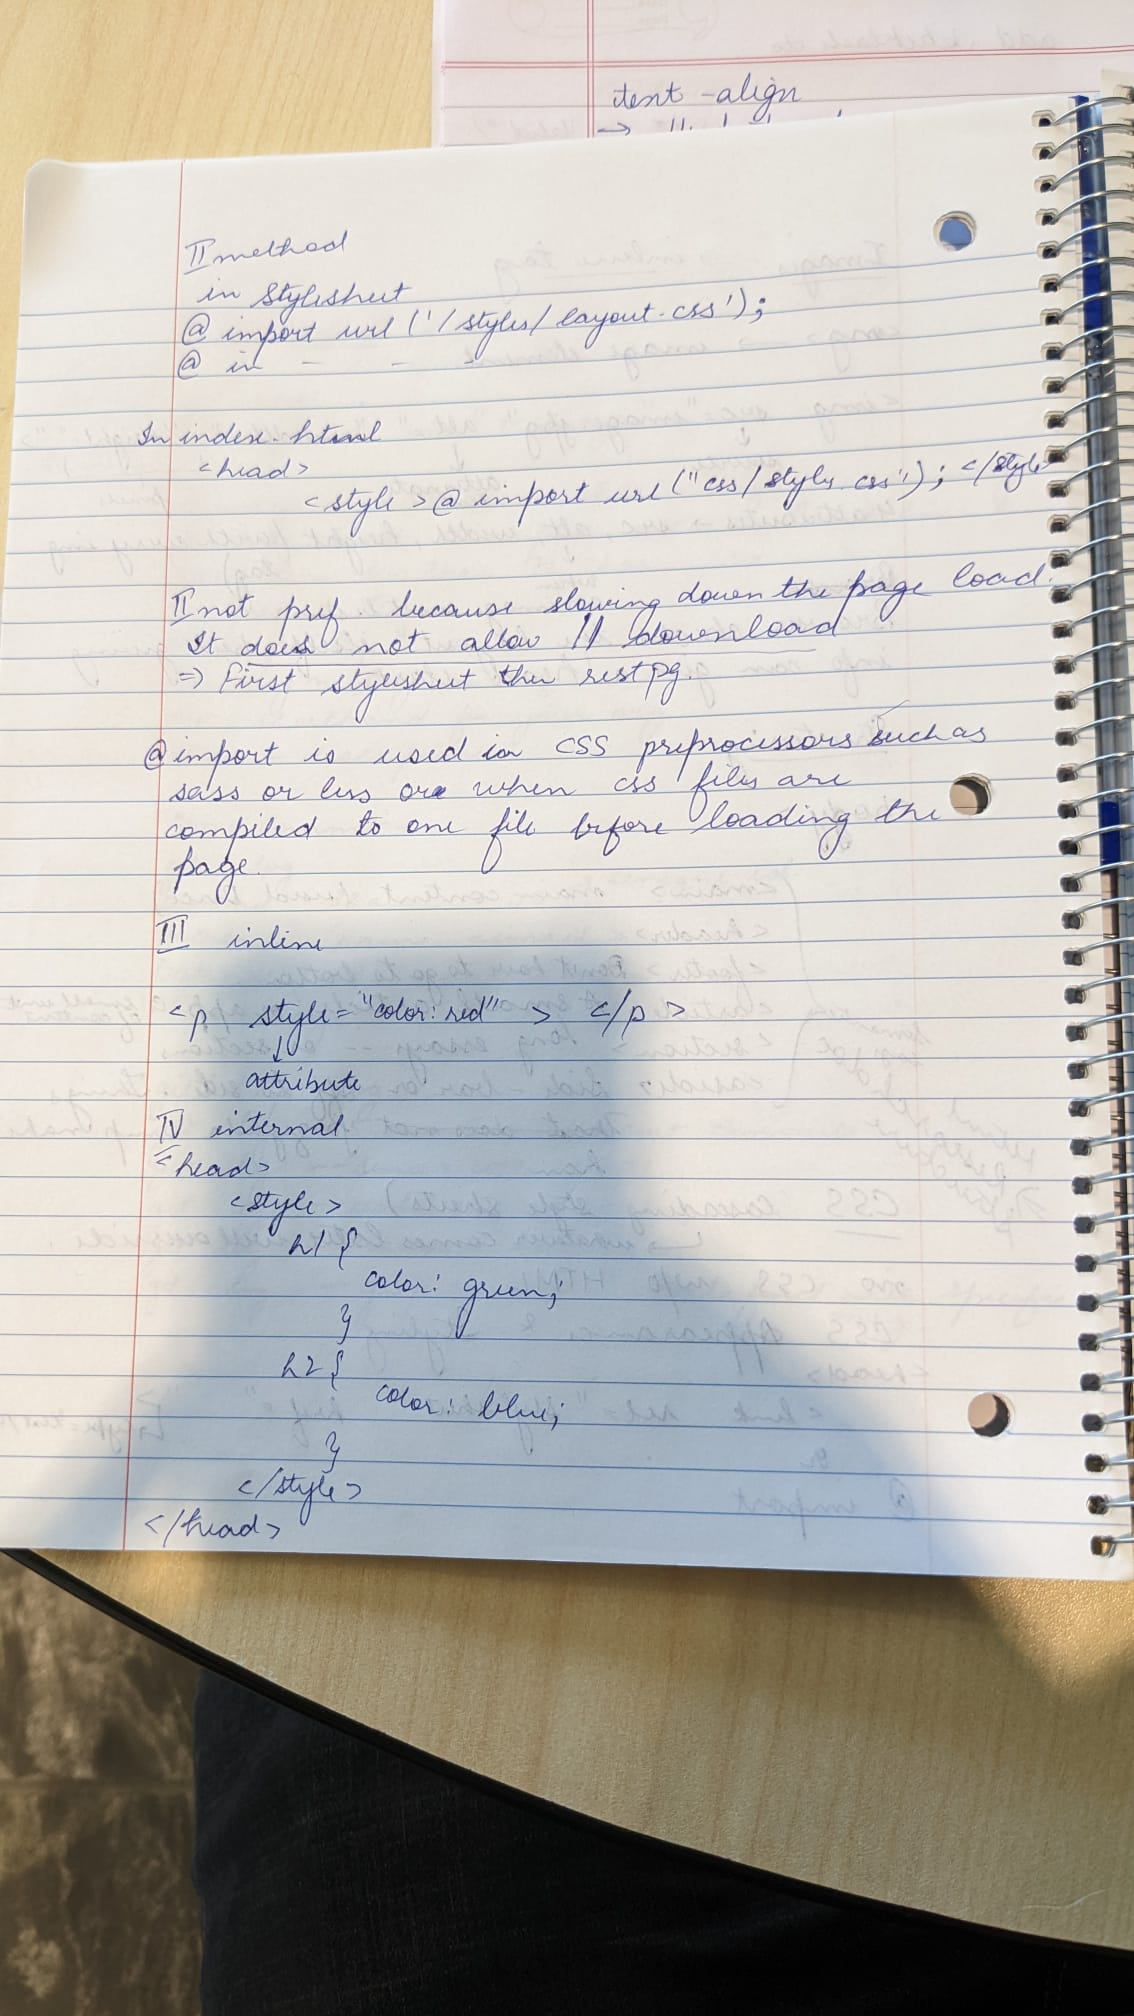 text-align
II method
in Stylesheet
@ import url ('/styles/layout.css');
@ in - - -
In index.html
<head>
<style>@ import url ("css/styles.css'); </style>
II not pref. because slowing down the page load.
It does not allow || download
=> First stylesheet then rest pg.
@import is used in CSS preprocessors such as
sass or less or when css files are
compiled to one file before loading the
page.
III inline
<p style="color: red" > </p>
↓
attribute
IV internal
<head>
<style>
h1 {
color: green;
}
h2 {
color: blue;
}
</style>
</head>